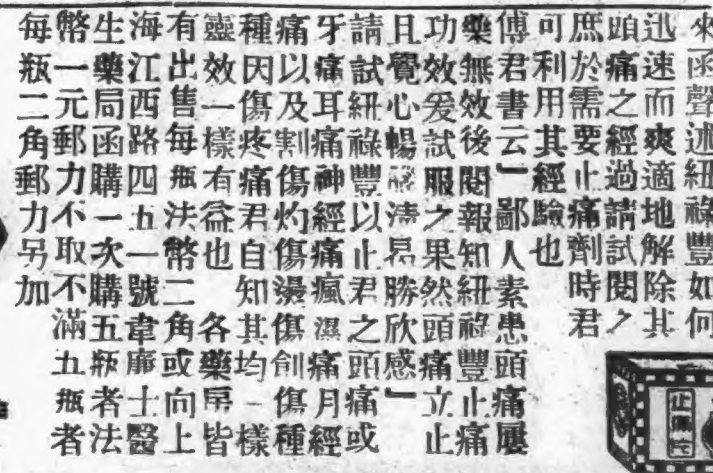 來函聲述紐祿豐如何
迅速而爽適地解除其
頭痛之經過請試閱之
庶於需要止痛劑時君
可利用其經驗也
傅君書云「鄙人素患頭痛屢
藥無效後閱報知紐祿豐止痛
功效爰試服之果然頭痛立止
且覺心暢神濤昂勝欣感」
請試紐祿豐以止君之頭痛或
牙痛耳痛神經痛瘋濕痛月經
痛以及割傷灼傷燙傷創傷種
種因傷疼痛君自知其均一樣
靈效一樣有益也 各藥局皆
有出售每瓶法幣二角或向上
海江西路四五一號韋廉士醫
生藥局函購一次購五瓶者法
幣一元郵力不取不滿五瓶者
每瓶二角郵力另加
止痛片